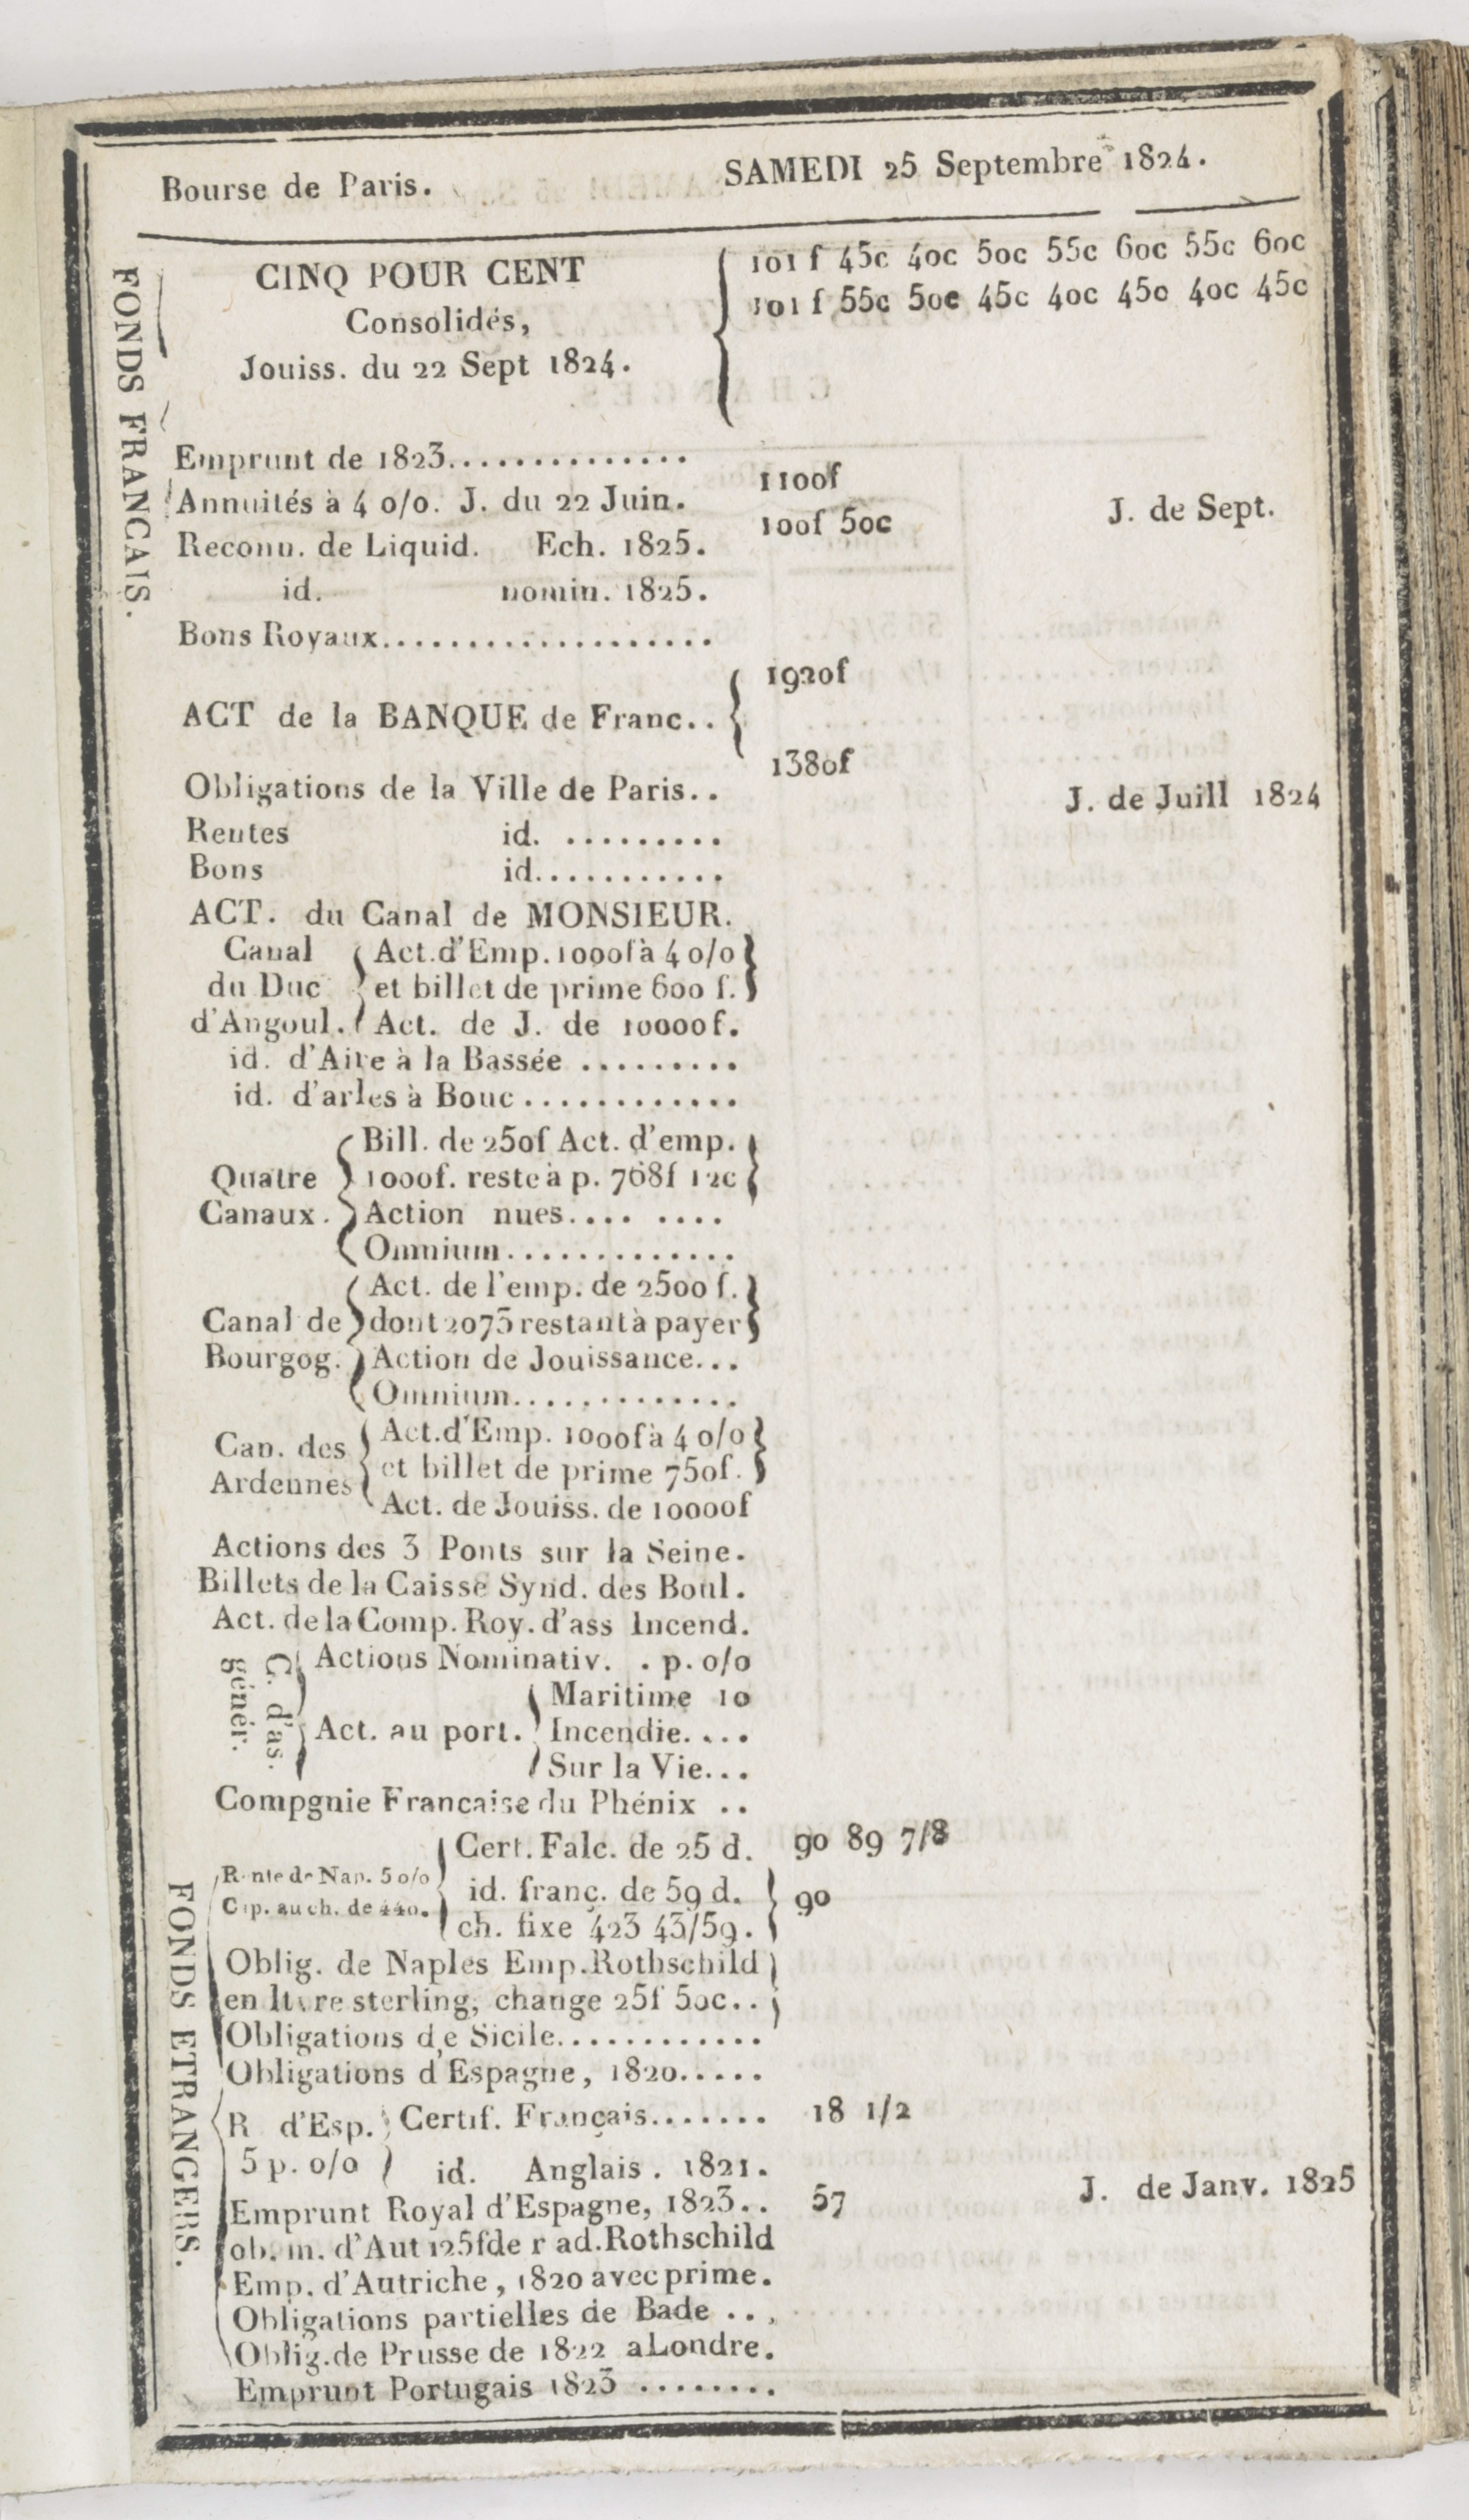 Bourse de Paris. SAMEDI 25 Septembre 1824.
FONDS FRANCAIS.
CINQ POUR CENT
Consolidés,
Jouiss. du 22 Sept 1824.
101 f 45c 40c 50c 55c 60c 55c 60c
101 f 55c 50c 45c 40c 45c 40c 45c
Emprunt de 1823..............
Annuités à 4 0/0. J. du 22 Juin. 1100f
Reconn. de Liquid. Ech. 1825. 100f 50c J. de Sept.
id. nomin. 1825.
Bons Royaux....................
ACT de la BANQUE de Franc.. 1920f
Obligations de la Ville de Paris.. 1380f J. de Juill 1824
Rentes id. .........
Bons id...........
ACT. du Canal de MONSIEUR.
Canal du Duc d'Angoul.
Act.d'Emp.1000f à 4 0/0
et billet de prime 600 f.
Act. de J. de 10000f.
id. d'Aire à la Bassée .........
id. d'arles à Bouc.............
Quatre Canaux.
Bill. de 250f Act. d'emp.
1000f. reste à p. 768f 12c
Action nues.... ....
Omnium.............
Canal de Bourgog.
Act. de l'emp. de 2500 f.
dont 2075 restant à payer
Action de Jouissance...
Omnium.............
Can. des Ardennes
Act.d'Emp. 1000f à 4 0/0
et billet de prime 750f.
Act. de Jouiss. de 10000f
Actions des 3 Ponts sur la Seine.
Billets de la Caisse Synd. des Boul.
Act. de la Comp. Roy. d'ass Incend.
C. d'as. génér.
Actions Nominativ. . p. 0/0
Act. au port.
Maritime 10
Incendie....
Sur la Vie...
Compgnie Francaise du Phénix ..
FONDS ETRANGERS.
Rente de Nap. 5 0/0
Cap. au ch. de 440.
Cert. Falc. de 25 d. 90 89 7/8
id. franç. de 59 d. 90
ch. fixe 423 43/59.
Oblig. de Naples Emp.Rothschild
en livre sterling, change 25f 50c..
Obligations de Sicile............
Obligations d'Espagne, 1820.....
R d'Esp. 5 p. 0/0
Certif. Français....... 18 1/2
id. Anglais. 1821.
Emprunt Royal d'Espagne, 1823.. 57 J. de Janv. 1825
ob. m. d'Aut 125f de r ad.Rothschild
Emp. d'Autriche, 1820 avec prime.
Obligations partielles de Bade ...
Oblig.de Prusse de 1822 a Londre.
Emprunt Portugais 1823 ........